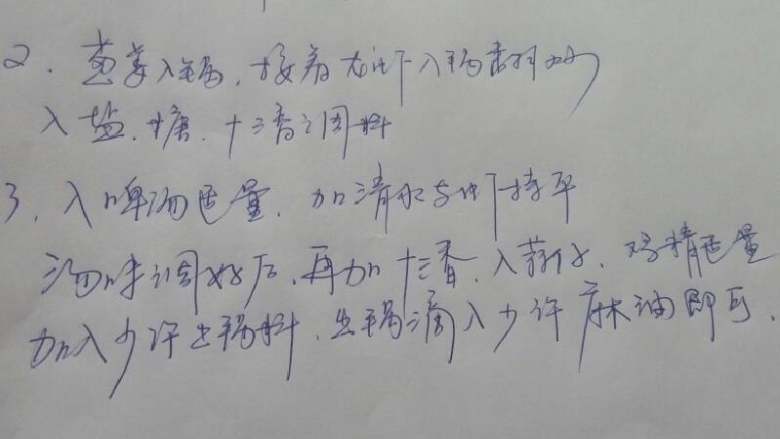 2. 葱姜入锅,接着龙虾下入锅翻炒
入盐.糖.十三香调料
3. 入啤酒适量.加清水与虾持平
汤味调好后.再加十三香.入蒜仔.鸡精适量
加入少许出锅料.出锅滴入少许麻油即可.